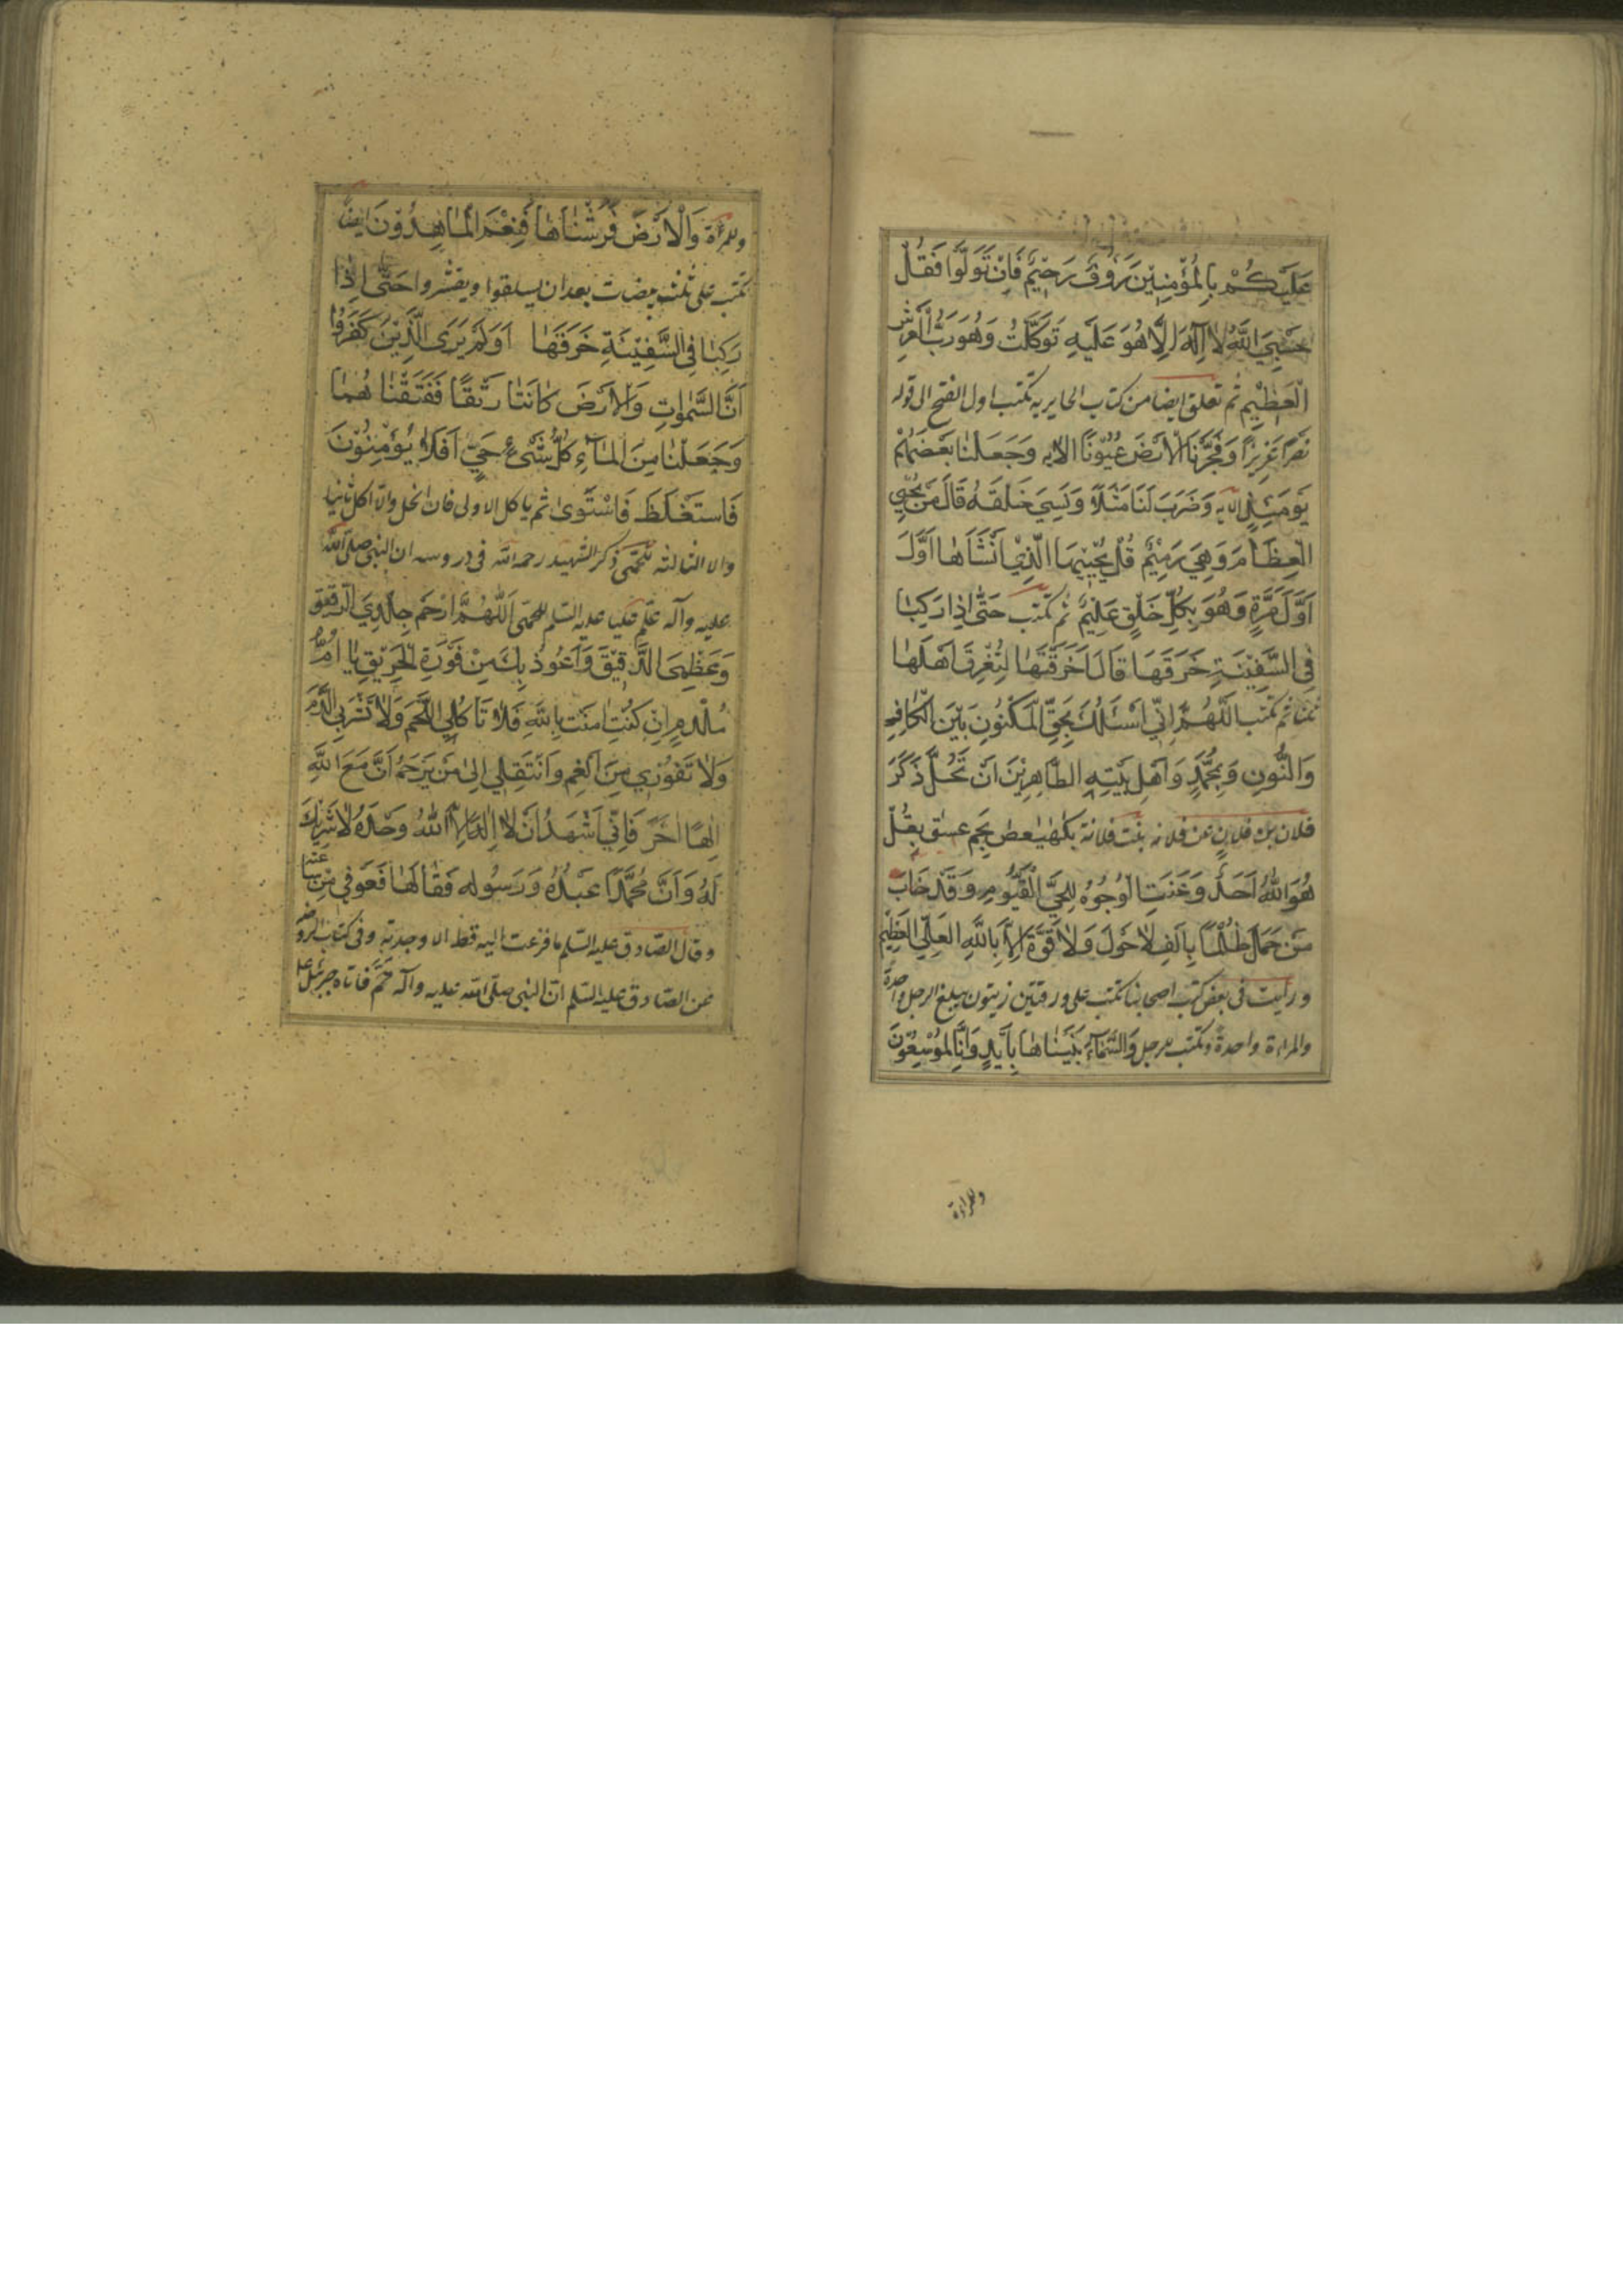 عَلَيْكُمْ بِالْمُؤْمِنِيْنَ رَءُوفٌ رَحِيْمٌ فَاِنْ تَوَلَّوْا فَقُلْ
حَسْبِيَ اللّٰهُ لَا اِلٰهَ اِلَّا هُوَ عَلَيْهِ تَوَكَّلْتُ وَهُوَ رَبُّ الْعَرْشِ
الْعَظِيْمِ ثم تعلق ايضا من كتاب الحايريه تكتب اول الفتح الى قوله
نَصْرًا عَزِيْزًا وَفَجَّرْنَا الْاَرْضَ عُيُوْنًا الايه وَجَعَلْنَا بَعْضَهُمْ
يَوْمَئِذٍ الايه وَضَرَبَ لَنَا مَثَلًا وَنَسِيَ خَلْقَهُ قَالَ مَنْ يُحْيِي
الْعِظَامَ وَهِيَ رَمِيْمٌ قُلْ يُحْيِيْهَا الَّذِيْ اَنْشَاَهَا اَوَّلَ
اَوَّلَ مَرَّةٍ وَهُوَ بِكُلِّ خَلْقٍ عَلِيْمٌ ثم تكتب حَتّٰى اِذَا رَكِبَا
فِي السَّفِيْنَةِ خَرَقَهَا قَالَ اَخَرَقْتَهَا لِتُغْرِقَ اَهْلَهَا
ثم تكتب اَللّٰهُمَّ اِنِّي اَسْئَلُكَ بِحَقِّ الْمَكْنُونِ بَيْنَ الْكَافِ
وَالنُّونِ وَبِمُحَمَّدٍ وَاَهْلِ بَيْتِهِ الطَّاهِرِيْنَ اَنْ تَحُلَّ ذَكَرَ
فلان بن فلان عن فلانه بنت فلانة بكهيعص بحم عسق بِقُلْ
هُوَ اللّٰهُ اَحَدٌ وَعَنَتِ الْوُجُوْهُ لِلْحَيِّ الْقَيُّومِ وَقَدْ خَابَ
مَنْ حَمَلَ ظُلْمًا بِاَلْفِ لَا حَوْلَ وَلَا قُوَّةَ اِلَّا بِاللّٰهِ الْعَلِيِّ الْعَظِيْمِ
ورأيت في بعض كتب اصحابنا تكتب على ورقتين زيتون يبلغ الرجل واحدة
والمراة واحدة وتكتب للرجل وَالسَّمَآءَ بَنَيْنَاهَا بِاَيْدٍ وَاِنَّا لَمُوْسِعُوْنَ
وللمراة
وللمراة وَالْاَرْضَ فَرَشْنَاهَا فَنِعْمَ الْمَاهِدُوْنَ ايضا
تكتب على ثلث بيضات بعد ان يسلقوا ويقشروا حَتّٰى اِذَا
رَكِبَا فِي السَّفِيْنَةِ خَرَقَهَا اَوَلَمْ يَرَى الَّذِيْنَ كَفَرُوْا
اَنَّ السَّمٰوَاتِ وَالْاَرْضَ كَانَتَا رَتْقًا فَفَتَقْنَا هُمَا
وَجَعَلْنَا مِنَ الْمَآءِ كُلَّ شَيْءٍ حَيٍّ اَفَلَا يُؤْمِنُوْنَ
فَاسْتَغْلَظَ فَاسْتَوٰى ثم ياكل الاولى فان انحل والا اكل ثانيا
والا الثالثه للحمّى ذكر الشهيد رحمه الله في دروسه ان النبي صلى الله
عليه وآله علّم عليا عليه السلم للحمى اَللّٰهُمَّ ارْحَمْ جِلْدِيَ الرَّقِيْقَ
وَعَظْمِيَ الدَّقِيْقَ وَاَعُوْذُ بِكَ مِنْ فَوْرَةِ الْحَرِيْقِ يَا اُمَّ
مِلْدَمٍ اِنْ كُنْتِ اٰمَنْتِ بِاللّٰهِ فَلَا تَاْكُلِي اللَّحْمَ وَلَا تَشْرَبِي الدَّمَ
وَلَا تَفُوْرِي مِنَ الْفَمِ وَانْتَقِلِي اِلٰى مَنْ يَزْعَمُ اَنَّ مَعَ اللّٰهِ
اِلٰهًا اٰخَرَ فَاِنِّي اَشْهَدُ اَنْ لَا اِلٰهَ اِلَّا اللّٰهُ وَحْدَهُ لَا شَرِيْكَ
لَهُ وَاَنَّ مُحَمَّدًا عَبْدُهُ وَرَسُوْلُه فَقَالَهَا فَعُوْفِيَ مِنْ
وقال الصادق عليه السلم ما فزعت اليه قط الا وجدته وفي كتاب الروضه
عن الصادق عليه السلم ان النبي صلى الله عليه وآله حُمَّ فاتاه جبرئيل